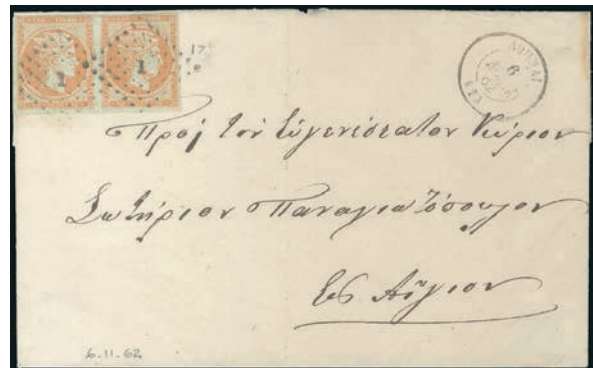 1 1
17
ΑΘΗΝΑΙ
6
62
Πρὸς τὸν Εὐγενέστατον Κύριον
Σωτήριον Παναγιωτόπουλον
Εἰς Αἴγιον
6.11.62